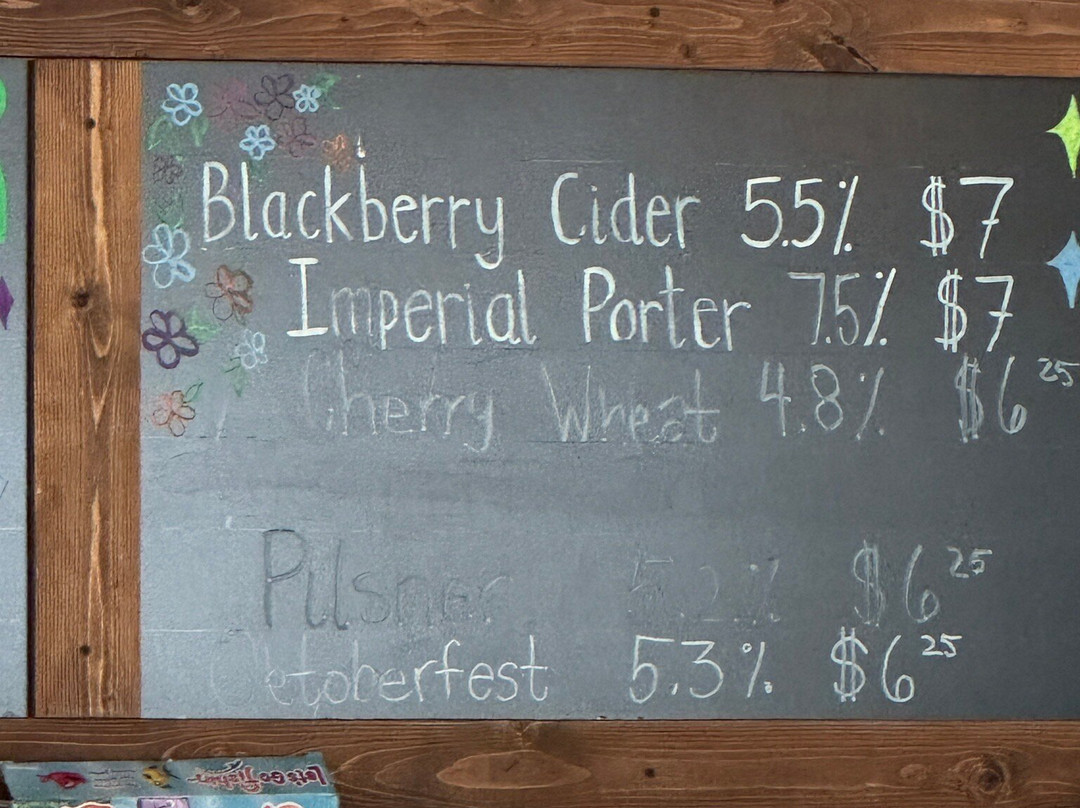 Blackberry Cider 5.5% $7
Imperial Porter 7.5% $7
Cherry Wheat 4.8% $6 25
Pilsner 5.2% $6 25
Octoberfest 5.3% $6 25
Let's Go Fishin'